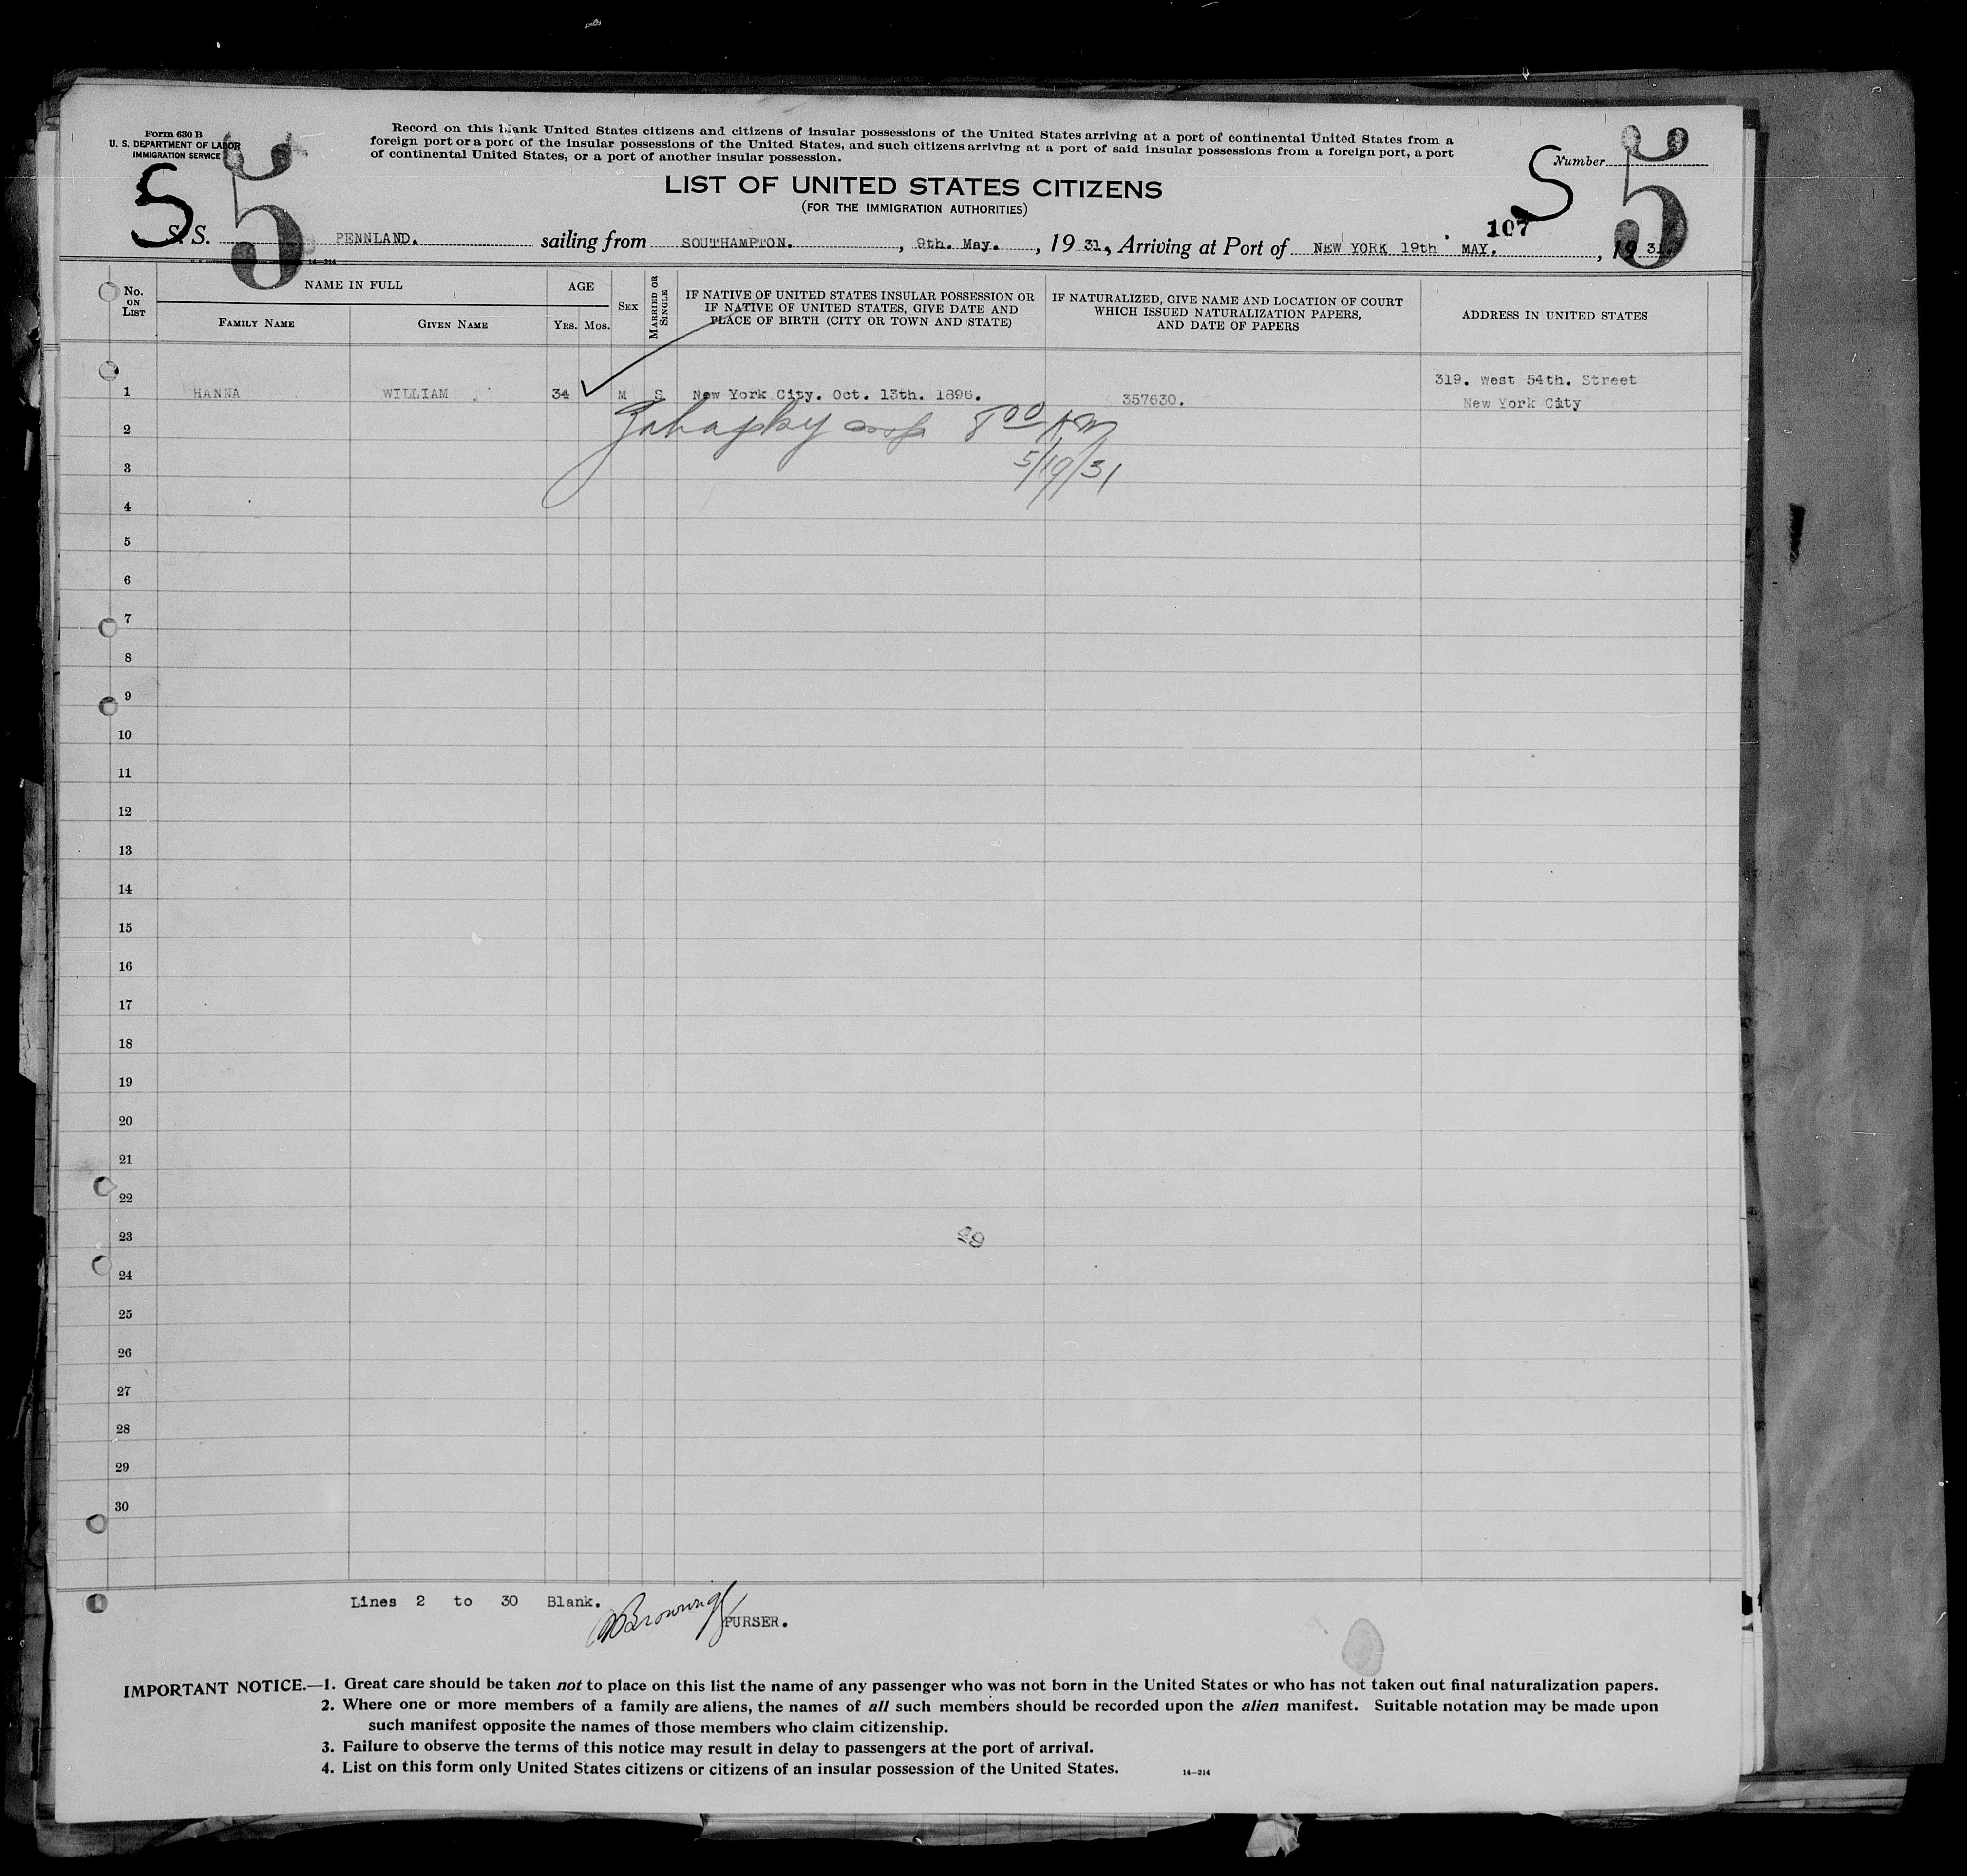 Form 630 B
U. S. DEPARTMENT OF LABOR
IMMIGRATION SERVICE
Record on this blank United States citizens and citizens of insular possessions of the United States arriving at a port of continental United States from a
foreign port or a port of the insular possessions of the United States, and such citizens arriving at a port of said insular possessions from a foreign port, a port
of continental United States, or a port of another insular possession.
5 5
Number
5 5
LIST OF UNITED STATES CITIZENS
(FOR THE IMMIGRATION AUTHORITIES)
107
S. S. PENNLAND. sailing from SOUTHAMPTON. , 9th. May. , 19 31, Arriving at Port of NEW YORK 19th MAY. , 19 31.
14—214
No. ON LIST
NAME IN FULL
FAMILY NAME
GIVEN NAME
AGE
YRS. MOS.
SEX
MARRIED OR SINGLE
IF NATIVE OF UNITED STATES INSULAR POSSESSION OR
IF NATIVE OF UNITED STATES, GIVE DATE AND
PLACE OF BIRTH (CITY OR TOWN AND STATE)
IF NATURALIZED, GIVE NAME AND LOCATION OF COURT
WHICH ISSUED NATURALIZATION PAPERS,
AND DATE OF PAPERS
ADDRESS IN UNITED STATES
1 HANNA WILLIAM 34 M S New York City. Oct. 13th. 1896. 357630. 319. West 54th. Street
New York City
2 8 00 AM
3 5/19/31
4
5
6
7
8
9
10
11
12
13
14
15
16
17
18
19
20
21
22
23
24
25
26
27
28
29
30
Lines 2 to 30 Blank.
Browning PURSER.
IMPORTANT NOTICE.—1. Great care should be taken not to place on this list the name of any passenger who was not born in the United States or who has not taken out final naturalization papers.
2. Where one or more members of a family are aliens, the names of all such members should be recorded upon the alien manifest. Suitable notation may be made upon
such manifest opposite the names of those members who claim citizenship.
3. Failure to observe the terms of this notice may result in delay to passengers at the port of arrival.
4. List on this form only United States citizens or citizens of an insular possession of the United States.
14—214